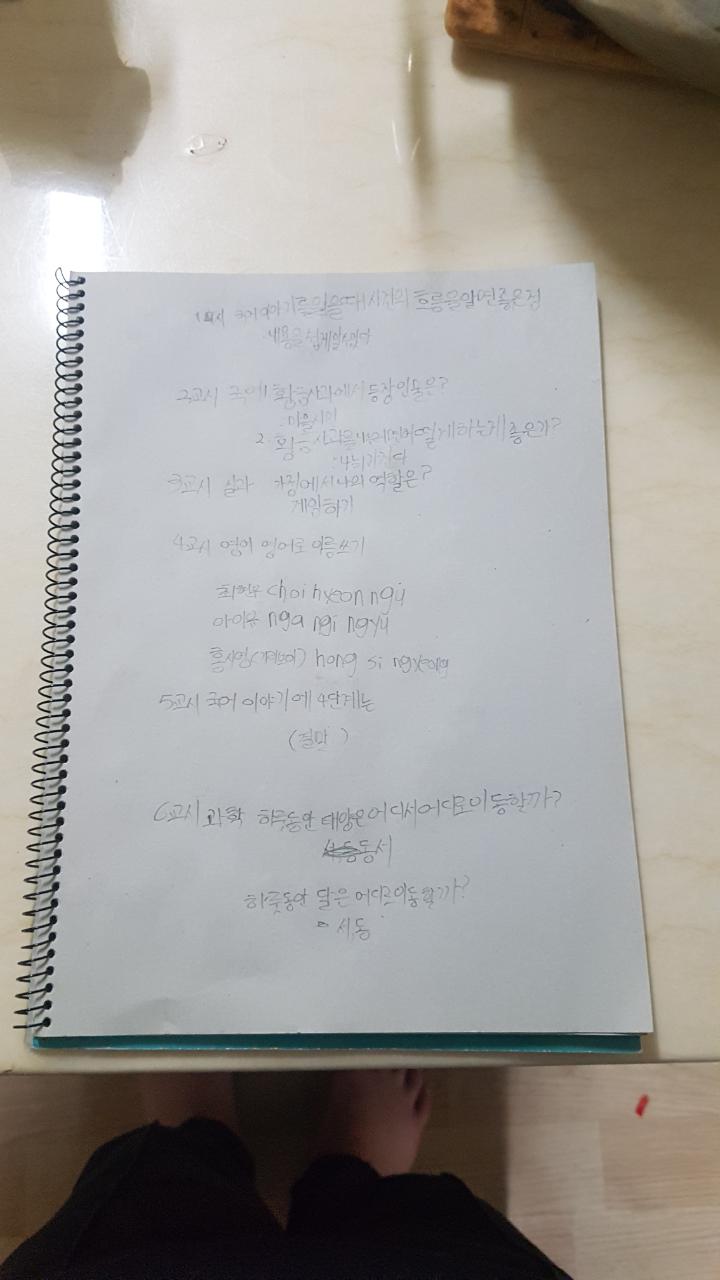 1교시 국어 이야기를 읽을때 시간의 흐름을알면좋은점
:내용을 쉽게알수있다
2교시 국어 황금사과에서 등장인물은?
:마을사이
2. 황금사과를 어떻게하는게 좋은가?
:나눠가진다
3교시 실과 가정에서 나의 역할은?
게임하기
4교시 영어 영어로 이름쓰기
최현우 choi hyeon ngu
아이유 nga ngi ngyu
홍시영 hong si ngyeong
5교시 국어 이야기에 4단계는
(결말)
6교시 과학 하룻동안 태양은어디서어디로이동할까?
동서
하룻동안 달은 어디로이동할까?
서동